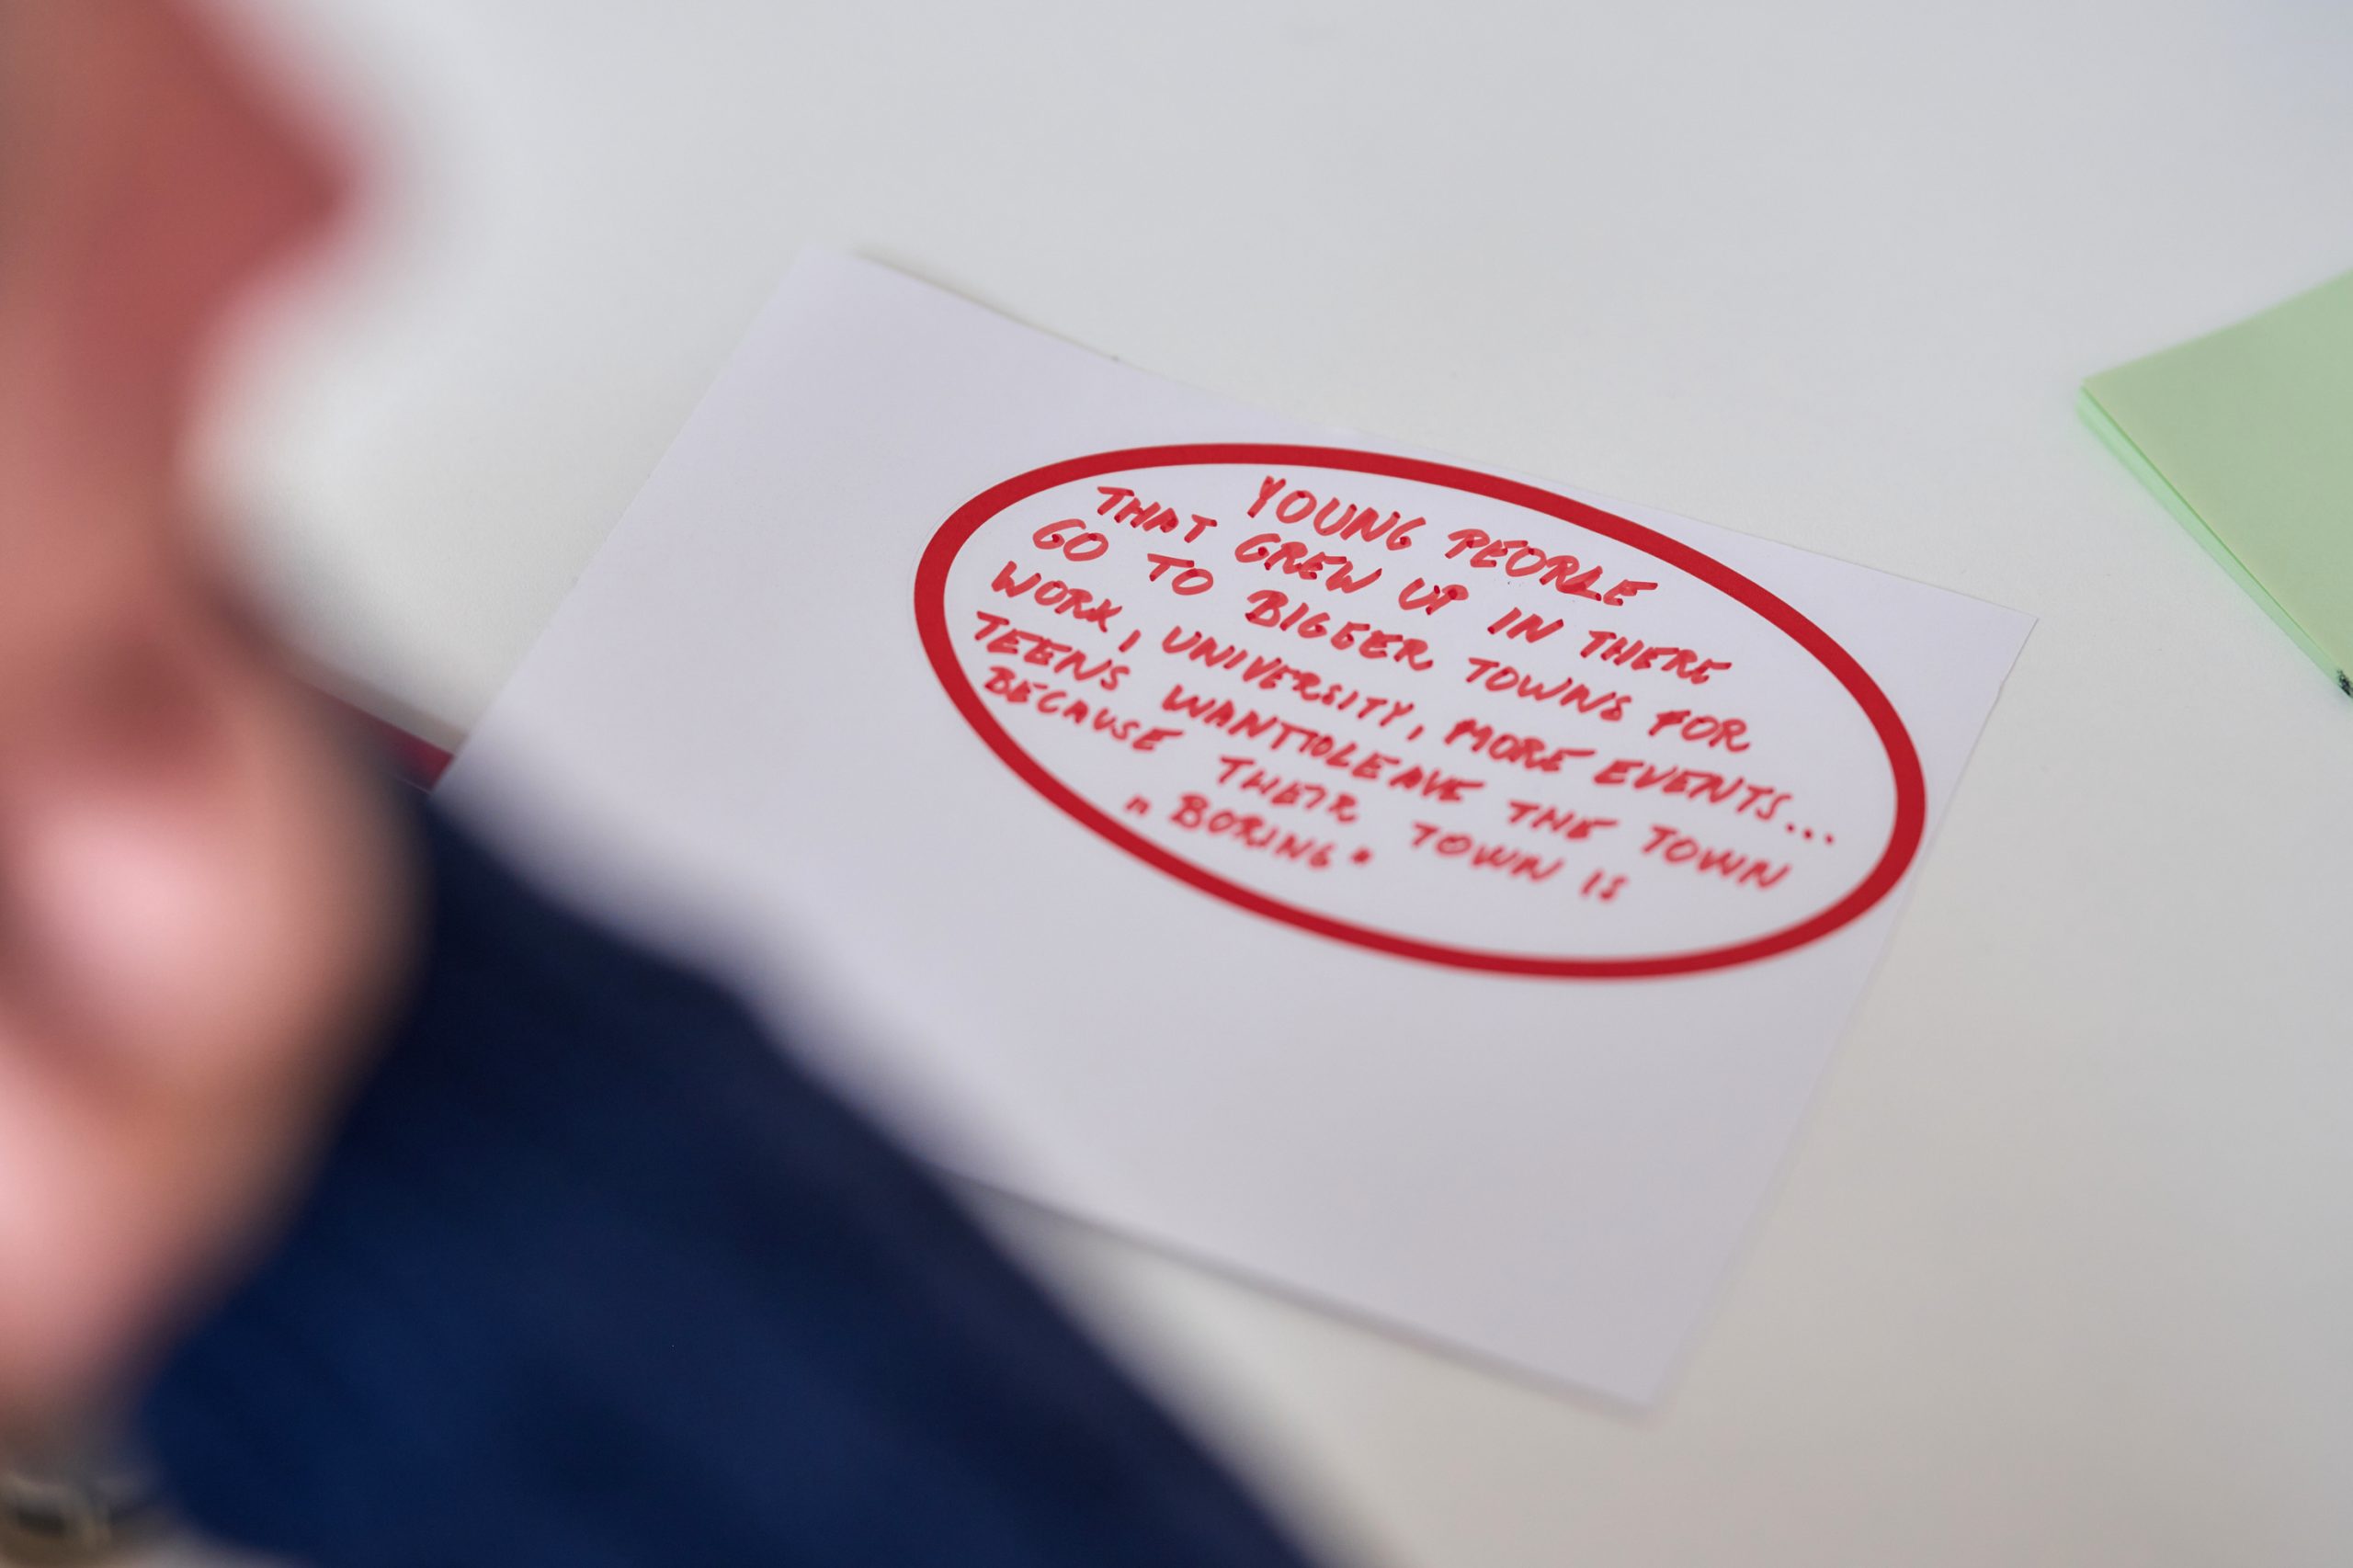 YOUNG PEOPLE
THAT GREW UP IN THERE
GO TO BIGGER TOWNS FOR
WORK, UNIVERSITY, MORE EVENTS...
TEENS WANT TO LEAVE THE TOWN
BECAUSE THEIR TOWN IS
"BORING"